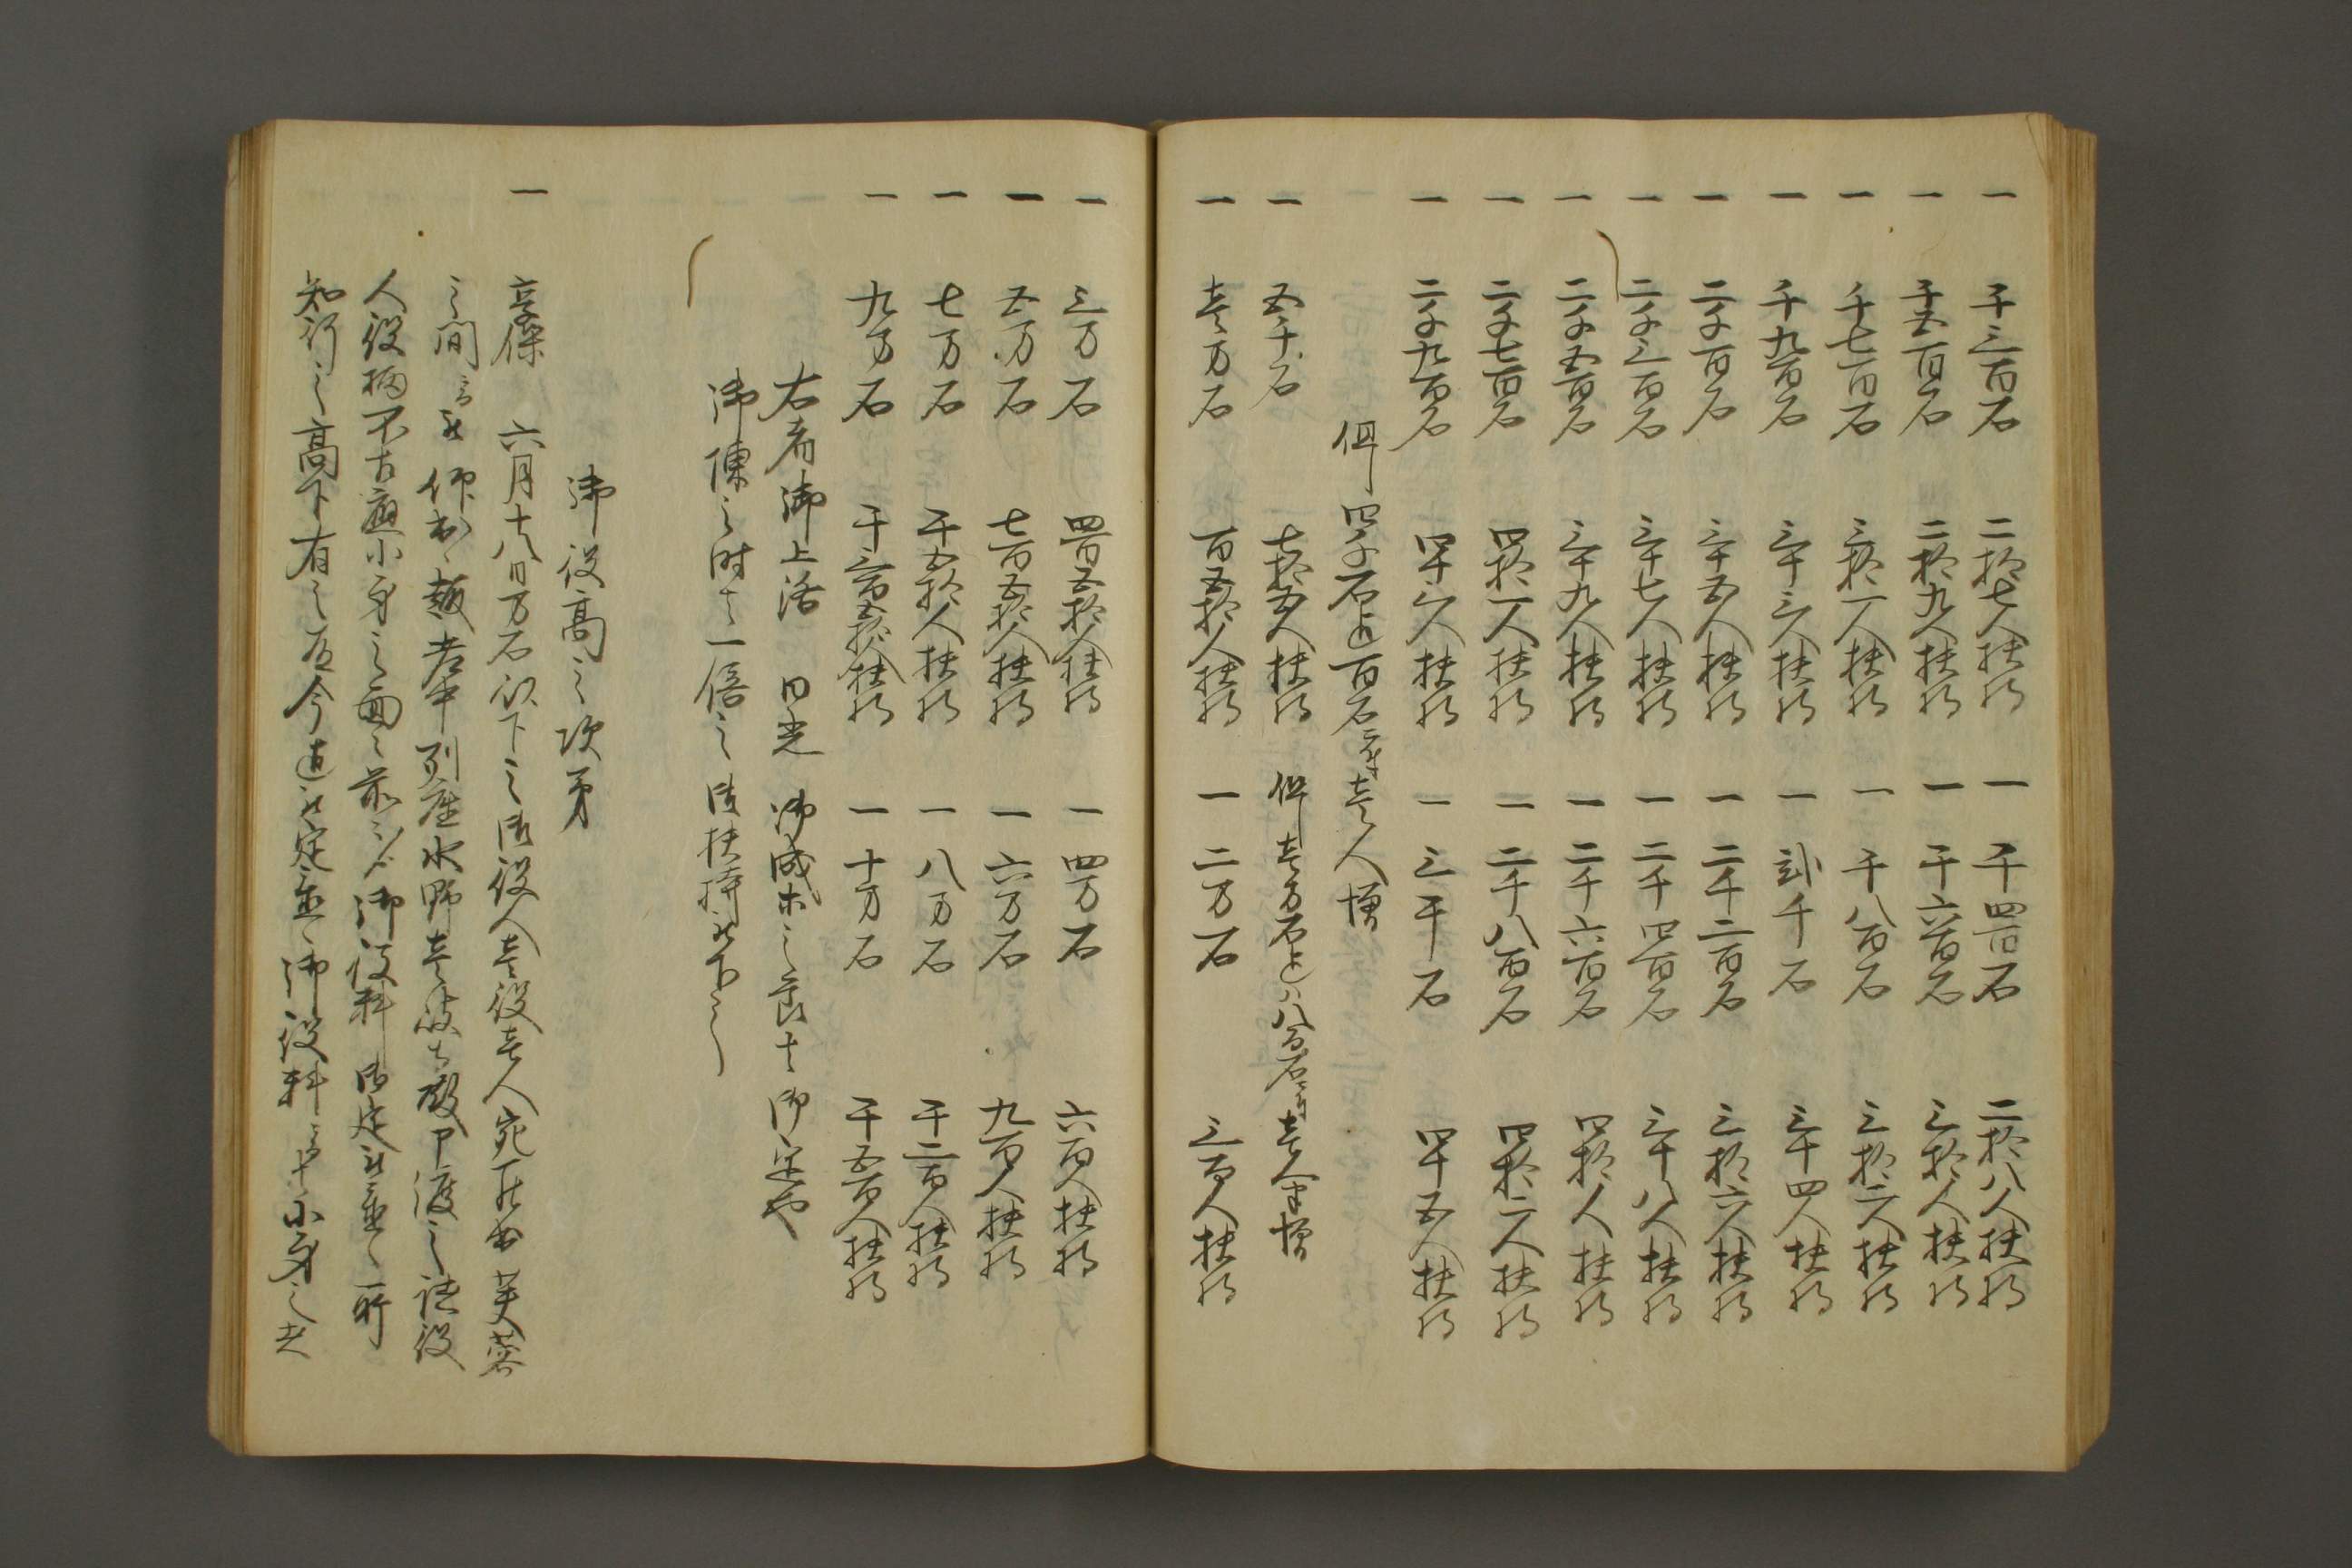 一 千三百石 二拾七人扶持 一 千四百石 二拾八人扶持
一 千五百石 二拾九人扶持 一 千六百石 三拾人扶持
一 千七百石 三拾一人扶持 一 千八百石 三拾二人扶持
一 千九百石 三十三人扶持 一 弐千石 三十四人扶持
一 二千百石 三十五人扶持 一 二千二百石 三拾六人扶持
一 二千三百石 三十七人扶持 一 二千四百石 三十八人扶持
一 二千五百石 三十九人扶持 一 二千六百石 四拾人扶持
一 二千七百石 四拾一人扶持 一 二千八百石 四拾二人扶持
一 二千九百石 四十三人扶持 一 三千石 四十五人扶持
但四千石迄百石ニ付壱人増
一 五千石 七拾五人扶持 但壱万石迄ハ百石ニ付壱人半増
一 壱万石 百五拾人扶持 一 二万石 三百人扶持
一 三万石 四百五拾人扶持 一 四万石 六百人扶持
一 五万石 七百五拾人扶持 一 六万石 九百人扶持
一 七万石 千五拾人扶持 一 八万石 千二百人扶持
一 九万石 千三百五拾人扶持 一 十万石 千五百人扶持
右者御上洛 日光 御成等之節も御定也
御陳之時も一倍之御扶持被下之
御役高之次第
一 享保 六月十八日万石以下之御役人壱役壱人宛被召 芙蓉
之間ニ而被 仰出候趣老中列座水野壱岐守殿申渡之諸役
人役柄不相応小身之面々前々ゟ御役料 御定被置候所
知行之高下有之故今迄被定置候御役料ニ而ハ小身之者